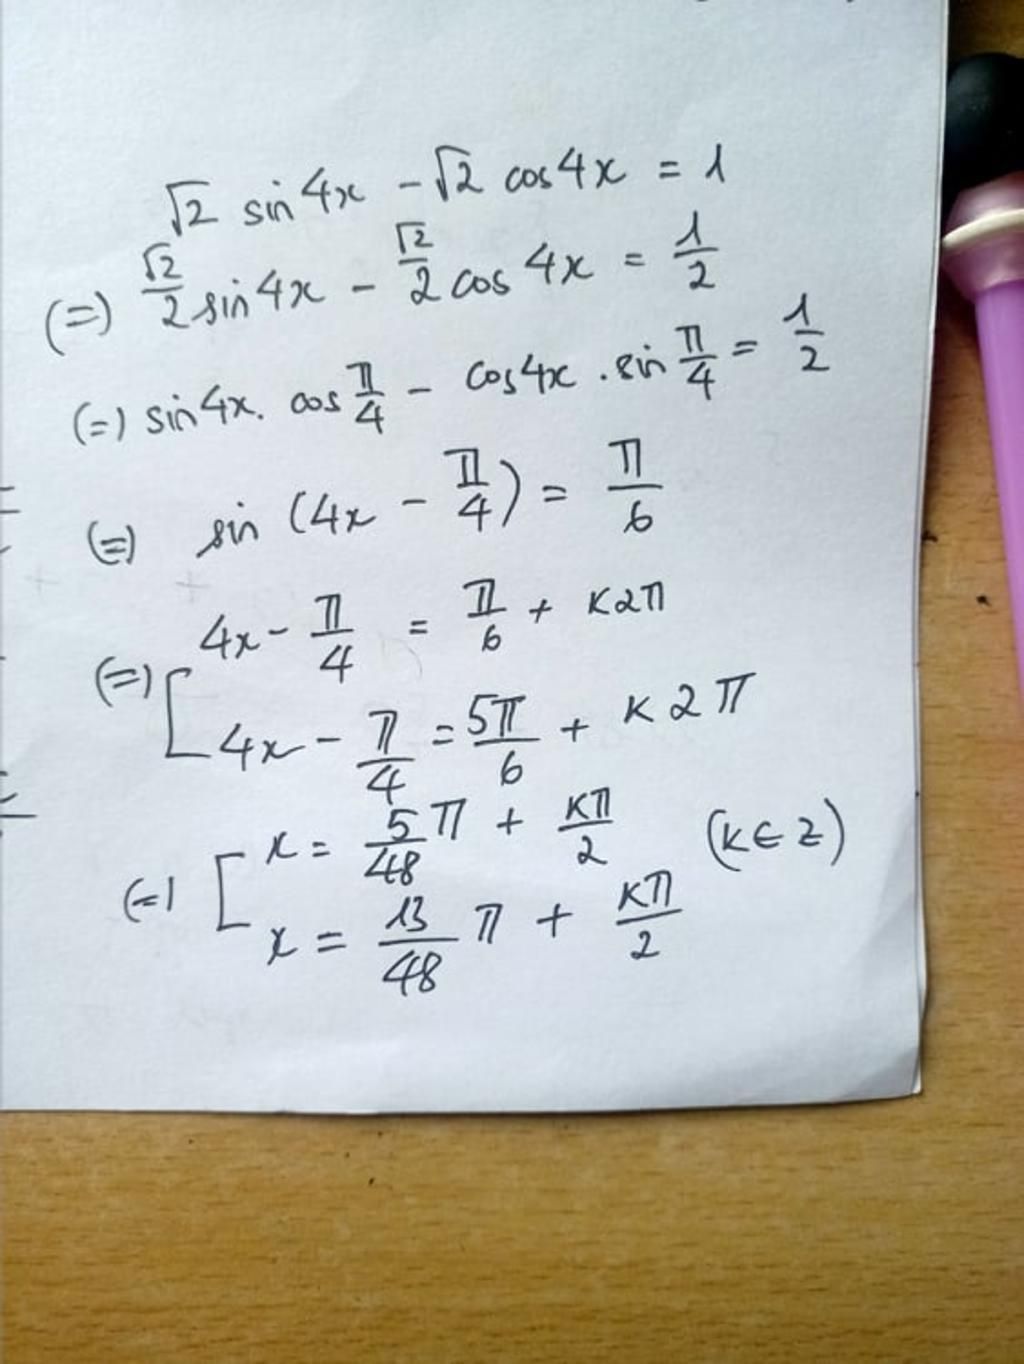 √2 sin 4x - √2 cos 4x = 1
(=) √2/2 sin 4x - √2/2 cos 4x = 1/2
(=) sin 4x. cos π/4 - cos 4x . sin π/4 = 1/2
(=) sin (4x - π/4) = π/6
(=) [ 4x - π/4 = π/6 + K2π
4x - π/4 = 5π/6 + K2π
(=) [ x = 5/48 π + Kπ/2 (K ∈ Z)
x = 13/48 π + Kπ/2